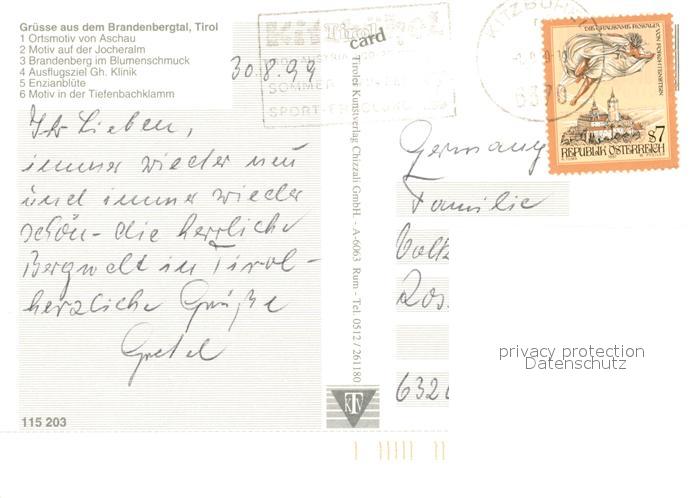 Grüsse aus dem Brandenbergtal, Tirol
1 Ortsmotiv von Aschau
2 Motiv auf der Jocheralm
3 Brandenberg im Blumenschmuck
4 Ausflugsziel Gh. Klinik
5 Enzianblüte
6 Motiv in der Tiefenbachklamm
30.8.99
Ihr Lieben,
immer wieder neu
und immer wieder
schön - die herrliche
Bergwelt in Tirol -
herzliche Grüße
Gretel
115 203
Tirol
card
Tiroler Kunstverlag Chizzali GmbH. - A-6063 Rum - Tel. 0512/261180
KTV
KITZBÜHEL
6370
SOMMER
SPORT-ERHOLUNG
DIE GRAUSAME ROSALIA
VON FORCHTENSTEIN
S7
REPUBLIK ÖSTERREICH
Germany
Familie
632
privacy protection
Datenschutz